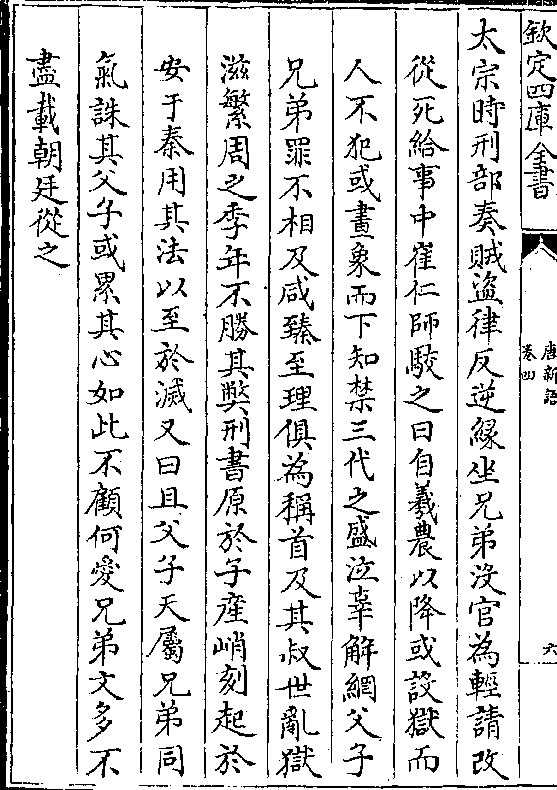 欽定四庫全書
唐新語
卷四
六
太宗時刑部奏賊盜律反逆緣坐兄弟沒官為輕請改
從死給事中崔仁師駁之曰自羲農以降或設獄而
人不犯或畫象而下知禁三代之盛泣辜解網父子
兄弟罪不相及咸臻至理俱為稱首及其叔世亂獄
滋繁周之季年不勝其弊刑書原於子產峭刻起於
安于秦用其法以至於滅又曰且父子天屬兄弟同
氣誅其父子或累其心如此不顧何愛兄弟文多不
盡載朝廷從之